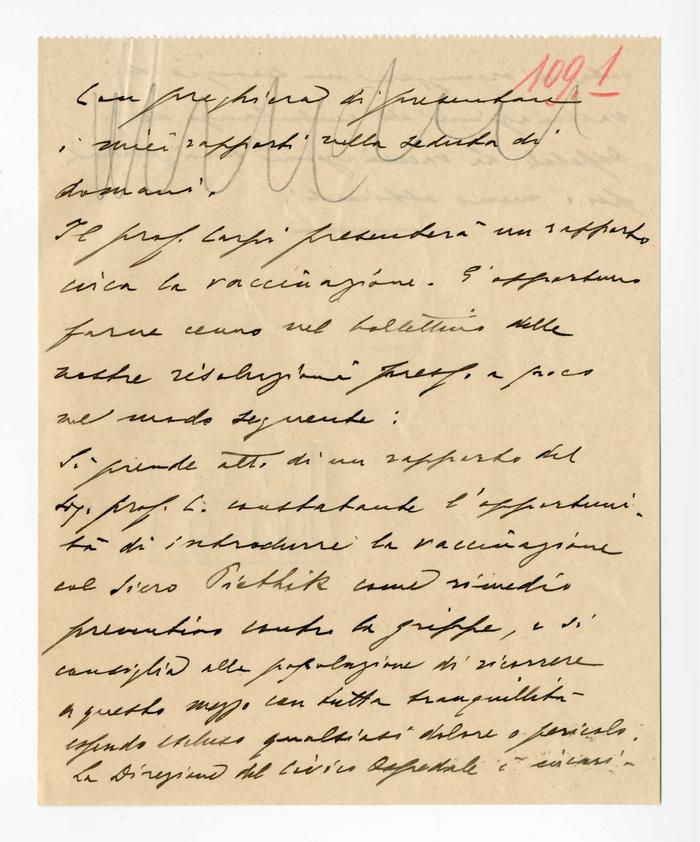 109,1
Con preghiera di presentare
i miei rapporti nella seduta di
domani.
Il prof. Carpi presenterà un rapporto
circa la vaccinazione. E' opportuno
farne cenno nel bollettino delle
nostre risoluzioni press. a poco
nel modo seguente:
Si prende atto di un rapporto del
Sig. prof. C. constatante l'opportuni-
tà di introdurre la vaccinazione
col siero Piethik come rimedio
preventivo contro la grippe, e si
consiglia alla popolazione di ricorrere
a questo mezzo con tutta tranquillità
essendo escluso qualsiasi dolore o pericolo.
La Direzione del Civico Ospedale è incari-